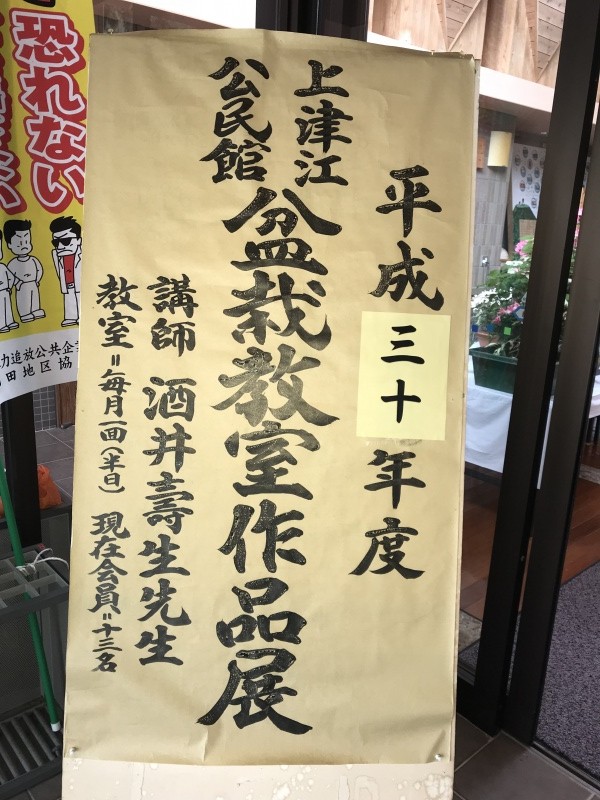 平成三十年度
上津江
公民館
盆栽教室作品展
講師 酒井壽生先生
教室=毎月一回(半日) 現在会員=十三名
恐れない
力追放公共企
田地区協